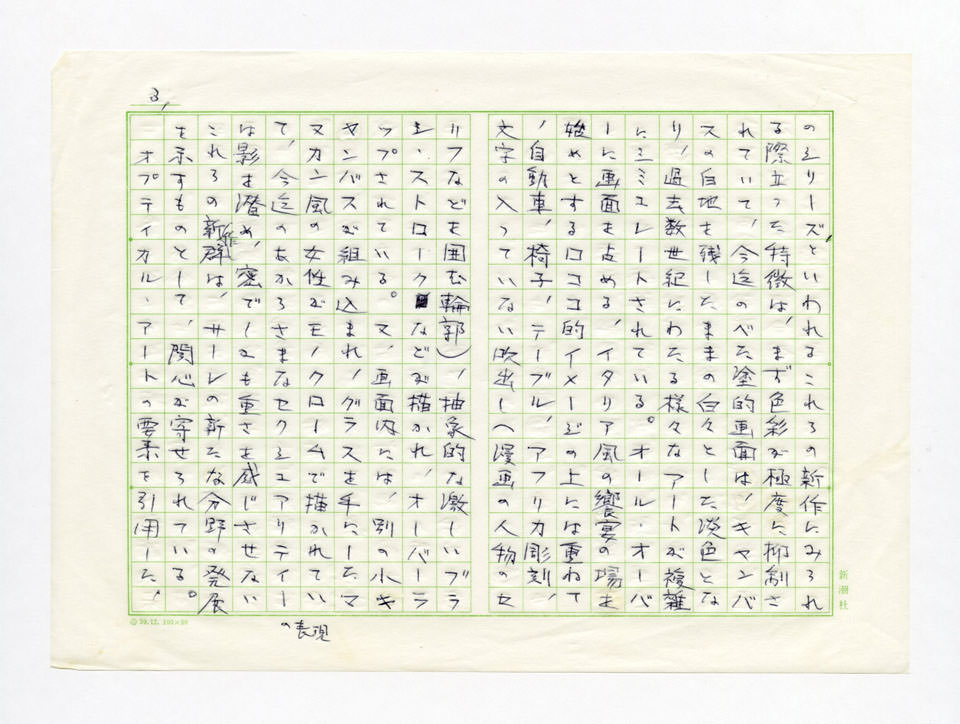 3,
のシリーズといわれるこれらの新作にみられ
る際立った特徴は、まず色彩が極度に抑制さ
れていて、今迄のべた塗的画面は、キャンバ
スの白地を残したままの白々とした淡色とな
り、過去数世紀にわたる様々なアートが複雑
にミミュレートされている。オール・オーバ
ーに画面を占める、イタリア風の饗宴の場を
始めとするロココ的イメージの上には重ねて
、自動車、椅子、テーブル、アフリカ彫刻、
文字の入っていない吹出し(漫画の人物のセ
リフなどを囲む輪郭)、抽象的な激しいブラ
シ・ストロークなどが描かれ、オーバーラ
ップされている。又、画面内には、別の小キ
ャンバスが組み込まれ、グラスを手にしたマ
ヌカン風の女性がモノクロームで描かれてい
て、今迄のあからさまなセクシュアリティー
の表現
は影を潜め、密でしかも重さを感じさせない
これらの新作群は、サーレの新たな分野の発展
を示すものとして、関心が寄せられている。
オプティカル・アートの要素を引用した、
新潮社